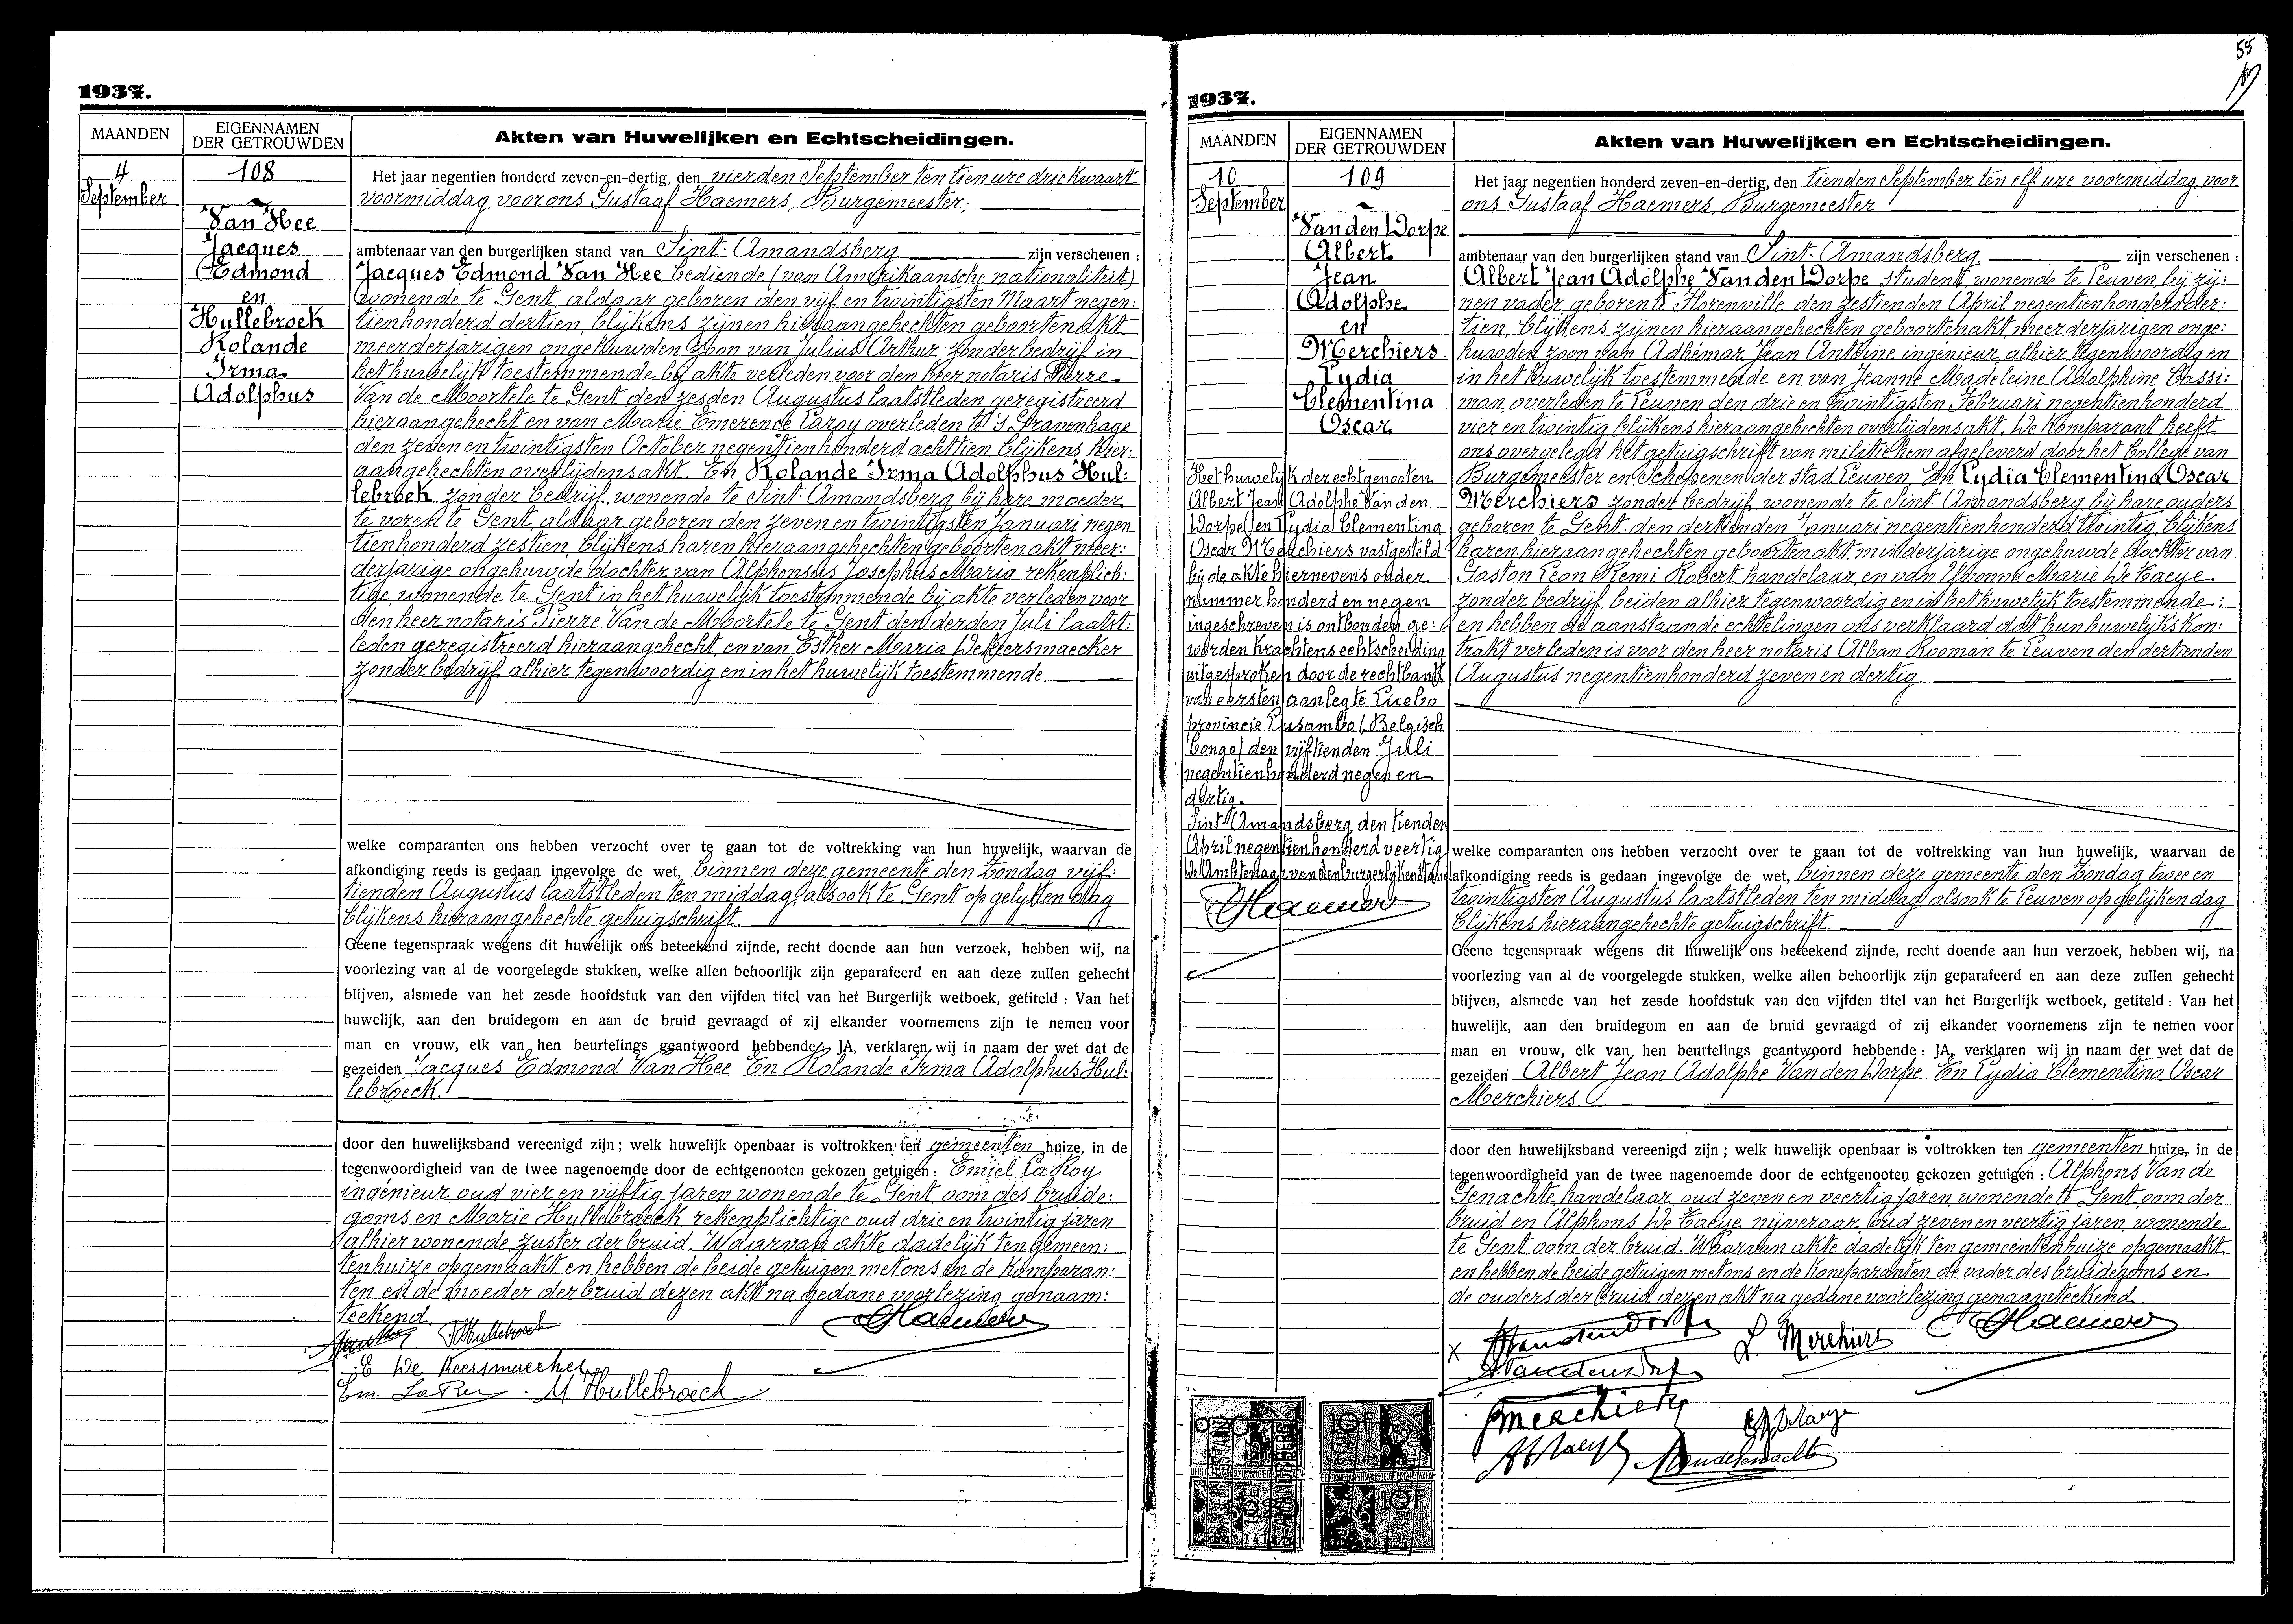 1937.
MAANDEN
EIGENNAMEN
DER GETROUWDEN
Akten van Huwelijken en Echtscheidingen.
4
September
108
Van Hee
Jacques
Edmond
en
Hullebroek
Rolande
Irma
Adolphus
Het jaar negentien honderd zeven-en-dertig, den vierden September ten tien ure drie kwaart
voormiddag voor ons Gustaaf Haemers, Burgemeester,
ambtenaar van den burgerlijken stand van Sint-Amandsberg zijn verschenen :
Jacques Edmond Van Hee bediende (van Amerikaansche nationaliteit)
wonende te Gent, aldaar geboren den vijf en twintigsten Maart negen:
tienhonderd dertien, blijkens zijnen hieraangehechten geboortenakt
meerderjarigen ongehuwden zoon van Julius Arthur zonder bedrijf in
het huwelijk toestemmende bij akte verleden voor den heer notaris Pierre
Van de Moortele te Gent den zesden Augustus laatstleden geregistreerd
hieraangehecht en van Marie Emerence Laroy overleden te 's Gravenhage
den zeven en twintigsten October negentienhonderd achttien blijkens hier:
aangehechten overlijdensakt. En Rolande Irma Adolphus Hul:
lebroek zonder bedrijf wonende te Sint-Amandsberg bij hare moeder
te voren te Gent, aldaar geboren den zeven en twintigsten Januari negen
tienhonderd zestien, blijkens haren hieraangehechten geboorten akt meer:
derjarige ongehuwde dochter van Alphonsus Josephus Maria rekenplich:
tige, wonende te Gent in het huwelijk toestemmende bij akte verleden voor
den heer notaris Pierre Van de Moortele te Gent den derden Juli laatst:
leden geregistreerd hieraangehecht, en van Esther Maria De Keersmaecker
zonder bedrijf, alhier tegenwoordig en in het huwelijk toestemmende
welke comparanten ons hebben verzocht over te gaan tot de voltrekking van hun huwelijk, waarvan de
afkondiging reeds is gedaan ingevolge de wet, binnen deze gemeente den Zondag vijf:
tienden Augustus laatstleden ten middag, alsook te Gent op gelijken dag
blijkens hieraangehechte getuigschrift.
Geene tegenspraak wegens dit huwelijk ons beteekend zijnde, recht doende aan hun verzoek, hebben wij, na
voorlezing van al de voorgelegde stukken, welke allen behoorlijk zijn geparafeerd en aan deze zullen gehecht
blijven, alsmede van het zesde hoofdstuk van den vijfden titel van het Burgerlijk wetboek, getiteld : Van het
huwelijk, aan den bruidegom en aan de bruid gevraagd of zij elkander voornemens zijn te nemen voor
man en vrouw, elk van hen beurtelings geantwoord hebbende : JA, verklaren wij in naam der wet dat de
gezeiden Jacques Edmond Van Hee En Rolande Irma Adolphus Hul:
lebroeck.
door den huwelijksband vereenigd zijn ; welk huwelijk openbaar is voltrokken ten gemeenten huize, in de
tegenwoordigheid van de twee nagenoemde door de echtgenooten gekozen getuigen : Emiel LaRoy
ingénieur, oud vier en vijftig jaren wonende te Gent, oom des bruide:
goms en Marie Hullebroeck rekenplichtige oud drie en twintig jaren
alhier wonende zuster der bruid. Waarvan akte dadelijk ten gemeen:
tenhuize opgemaakt en hebben de beide getuigen met ons en de komparan:
ten en de moeder der bruid dezen akt na gedane voorlezing genaam:
teekend.
RHullebroeck
GHaemers
E De Keersmaecker
Em. LaRoy
M Hullebroeck
55
1937.
MAANDEN
EIGENNAMEN
DER GETROUWDEN
Akten van Huwelijken en Echtscheidingen.
10
September
109
Van den Dorpe
Albert
Jean
Adolphe
en
Merchiers
Lydia
Clementina
Oscar
Het huwelijk der echtgenooten
Albert Jean Adolphe Van den
Dorpe en Lydia Clementina
Oscar Merchiers vastgesteld
bij de akte hiernevens onder
nummer honderd en negen
ingeschreven is ontbonden ge:
worden krachtens echtscheiding
uitgesproken door de rechtbank
van eersten aanleg te Luebo
provincie Lusambo (Belgisch
Congo) den vijftienden Juli
negentienhonderd negen en
dertig.
Sint-Amandsberg den tienden
April negentienhonderd veertig
De Ambtenaar van den burgerlijken stand
GHaemers
Het jaar negentien honderd zeven-en-dertig, den tienden September ten elf ure voormiddag voor
ons Gustaaf Haemers, Burgemeester
ambtenaar van den burgerlijken stand van Sint-Amandsberg zijn verschenen :
Albert Jean Adolphe Van den Dorpe student, wonende te Leuven, bij zij:
nen vader, geboren te Florenville den zestienden April negentienhonderd der:
tien, blijkens zijnen hieraangehechten geboortenakt meerderjarigen onge:
huwden zoon van Adhémar Jean Antoine ingénieur, alhier tegenwoordig en
in het huwelijk toestemmende en van Jeanne Madeleine Adolphine Cassi:
man, overleden te Leuven den drie en twintigsten Februari negentienhonderd
vier en twintig blijkens hieraangehechten overlijdensakt. De komparant heeft
ons overgelegd het getuigschrift van militie hem afgeleverd door het College van
Burgemeester en Schepenen der stad Leuven. En Lydia Clementina Oscar
Merchiers zonder bedrijf, wonende te Sint-Amandsberg bij hare ouders
geboren te Gent den dertienden Januari negentienhonderd twintig, blijkens
haren hieraangehechten geboorten akt minderjarige ongehuwde dochter van
Gaston Leon Remi Robert handelaar, en van Yvonne Marie De Taeye
zonder bedrijf beiden alhier tegenwoordig en in het huwelijk toestemmende:
en hebben de aanstaande echtelingen ons verklaard dat hun huwelijkskon:
trakt verleden is voor den heer notaris Alban Rooman te Leuven den dertienden
Augustus negentienhonderd zeven en dertig
welke comparanten ons hebben verzocht over te gaan tot de voltrekking van hun huwelijk, waarvan de
afkondiging reeds is gedaan ingevolge de wet, binnen deze gemeente den Zondag twee en
twintigsten Augustus laatstleden ten middag alsook te Leuven op gelijken dag
blijkens hieraangehechte getuigschrift.
Geene tegenspraak wegens dit huwelijk ons beteekend zijnde, recht doende aan hun verzoek, hebben wij, na
voorlezing van al de voorgelegde stukken, welke allen behoorlijk zijn geparafeerd en aan deze zullen gehecht
blijven, alsmede van het zesde hoofdstuk van den vijfden titel van het Burgerlijk wetboek, getiteld : Van het
huwelijk, aan den bruidegom en aan de bruid gevraagd of zij elkander voornemens zijn te nemen voor
man en vrouw, elk van hen beurtelings geantwoord hebbende : JA, verklaren wij in naam der wet dat de
gezeiden Albert Jean Adolphe Van den Dorpe En Lydia Clementina Oscar
Merchiers.
door den huwelijksband vereenigd zijn ; welk huwelijk openbaar is voltrokken ten gemeenten huize, in de
tegenwoordigheid van de twee nagenoemde door de echtgenooten gekozen getuigen : Alphons Van de
Genachte, handelaar, oud zeven en veertig jaren, wonende te Gent, oom der
bruid en Alphons De Taeye, nijveraar, oud zeven en veertig jaren, wonende
te Gent oom der bruid. Waarvan akte dadelijk ten gemeentenhuize opgemaakt
en hebben de beide getuigen met ons en de komparanten de vader des bruidegoms en
de ouders der bruid dezen akt na gedane voorlezing genaamteekend.
X
AVandenDorpe
L. Merchiers
GHaemers
A.VandenDorpe
GMerchiers
10F
10F